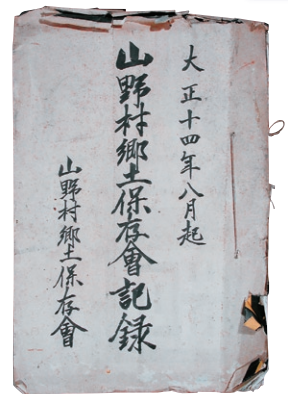 大正十四年八月起
山野村郷土保存會記録
山野村郷土保存會